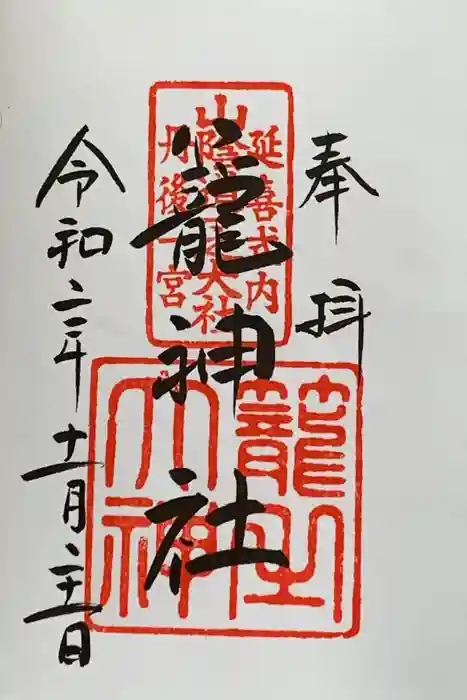 奉拝
延喜式内
山陰道大社
丹後一宮
籠神社
籠之
大神
令和二年十一月二十一日